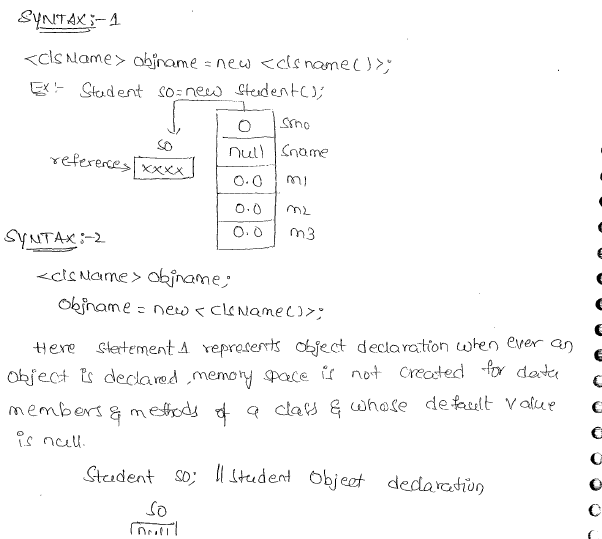 SYNTAX:-1
<clsName> objname = new <clsname()>;
Ex:- Student so=new Student();
so
references
xxxx
0 sno
null sname
0.0 m1
0.0 m2
0.0 m3
SYNTAX:-2
<clsName> objname;
Objname = new <clsName()>;
Here statement 1 represents object declaration when ever an
object is declared, memory space is not created for data
members & methods of a class & whose default value
is null.
Student so; // Student Object declaration
so
null